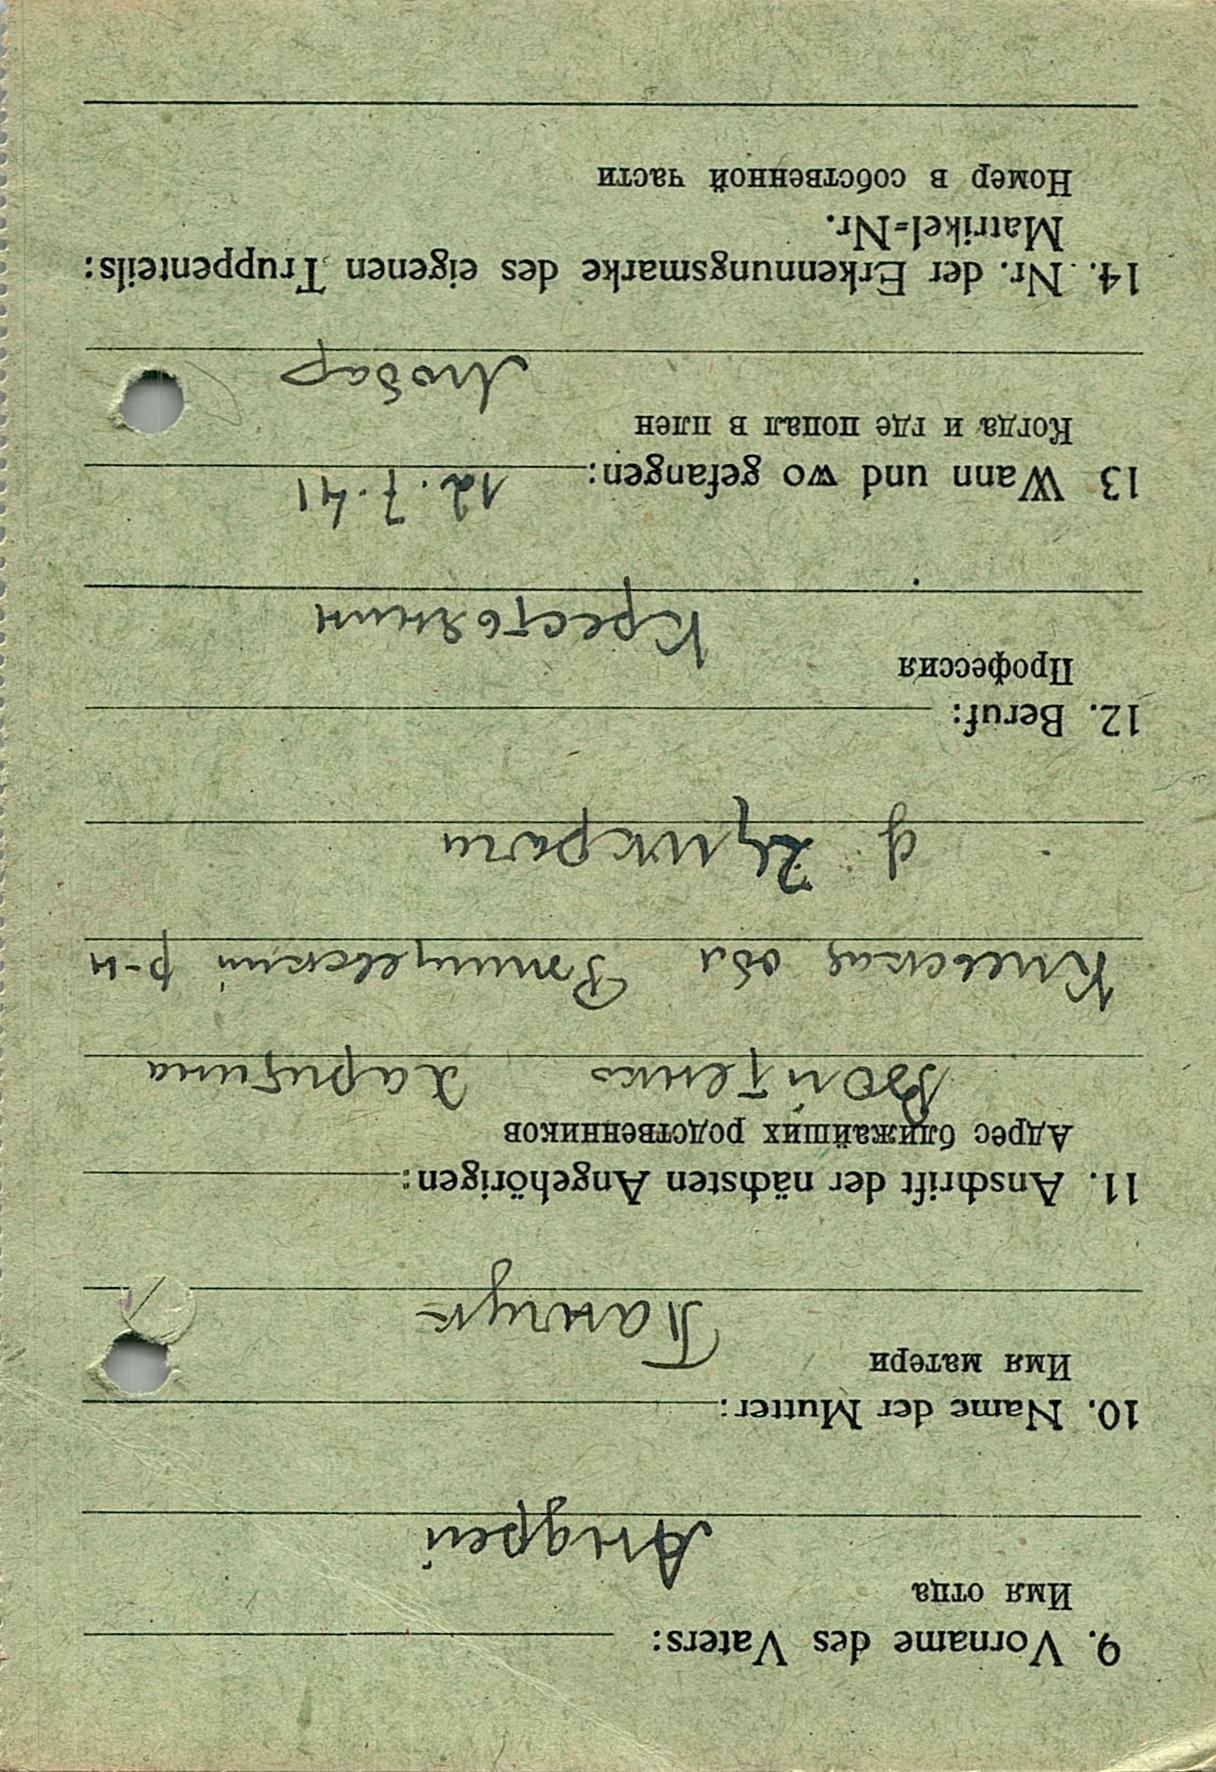 9. Vorname des Vaters:
Имя отца
Андрей
10. Name der Mutter:
Имя матери
Панчук
11. Anschrift der nächsten Angehörigen:
Адрес ближайших родственников
Войтенко Харитина
Киевская обл Ржищевский р-н
д
12. Beruf:
Профессия
Крестьянин
13 Wann und wo gefangen:
12.7.41
Когда и где попал в плен
Любар
14. Nr. der Erkennungsmarke des eigenen Truppenteils:
Matrikel=Nr.
Номер в собственной части